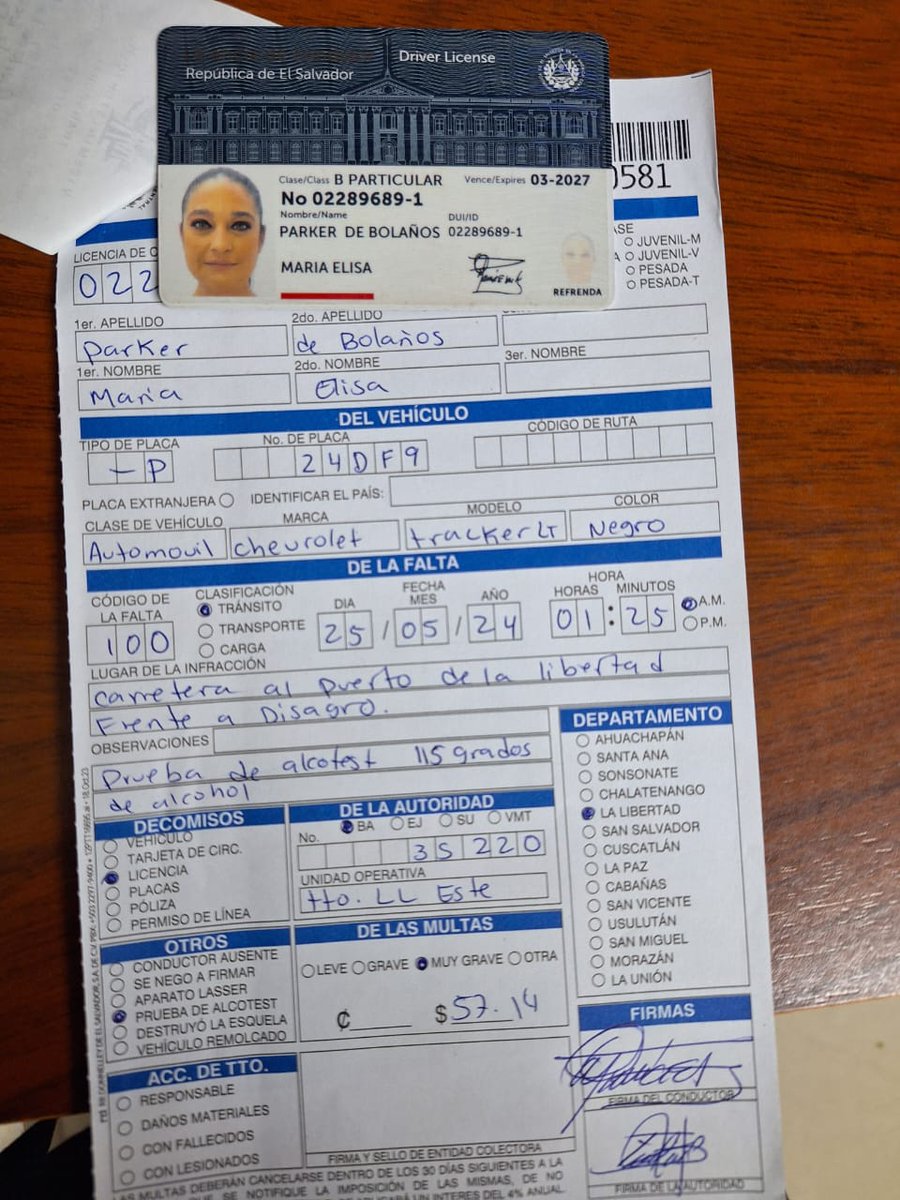 República de El Salvador
Driver License
Clase/Class B PARTICULAR
Vence/Expires 03-2027
No 02289689-1
Nombre/Name
DUI/ID
PARKER DE BOLAÑOS 02289689-1
MARIA ELISA
REFRENDA
0581
LICENCIA DE
022
JUVENIL-M
JUVENIL-V
PESADA
PESADA-T
1er. APELLIDO
2do. APELLIDO
Parker
de Bolaños
1er. NOMBRE
2do. NOMBRE
3er. NOMBRE
Maria
Elisa
DEL VEHÍCULO
TIPO DE PLACA
No. DE PLACA
CÓDIGO DE RUTA
-P
24DF9
PLACA EXTRANJERA
IDENTIFICAR EL PAÍS:
CLASE DE VEHÍCULO
MARCA
MODELO
COLOR
Automovil
chevrolet
tracker LT
Negro
DE LA FALTA
CÓDIGO DE LA FALTA
CLASIFICACIÓN
TRÁNSITO
TRANSPORTE
CARGA
FECHA
DIA
MES
AÑO
HORA
HORAS
MINUTOS
A.M.
P.M.
100
25/05/24
01:25
LUGAR DE LA INFRACCIÓN
carretera al puerto de la libertad
Frente a Disagro.
OBSERVACIONES
Prueba de alcotest 115 grados
de alcohol
DEPARTAMENTO
AHUACHAPÁN
SANTA ANA
SONSONATE
CHALATENANGO
LA LIBERTAD
SAN SALVADOR
CUSCATLÁN
LA PAZ
CABAÑAS
SAN VICENTE
USULUTÁN
SAN MIGUEL
MORAZÁN
LA UNIÓN
DECOMISOS
VEHÍCULO
TARJETA DE CIRC.
LICENCIA
PLACAS
PÓLIZA
PERMISO DE LÍNEA
DE LA AUTORIDAD
No.
BA
EJ
SU
VMT
35220
UNIDAD OPERATIVA
tto. LL Este
OTROS
CONDUCTOR AUSENTE
SE NEGO A FIRMAR
APARATO LASSER
PRUEBA DE ALCOTEST
DESTRUYÓ LA ESQUELA
VEHÍCULO REMOLCADO
DE LAS MULTAS
LEVE
GRAVE
MUY GRAVE
OTRA
₡
$57.14
FIRMAS
FIRMA DEL CONDUCTOR
FIRMA DE LA AUTORIDAD
ACC. DE TTO.
RESPONSABLE
DAÑOS MATERIALES
CON FALLECIDOS
CON LESIONADOS
FIRMA Y SELLO DE ENTIDAD COLECTORA
LAS MULTAS DEBERÁN CANCELARSE DENTRO DE LOS 30 DÍAS SIGUIENTES A LA
SE NOTIFIQUE LA IMPOSICIÓN DE LAS MISMAS, DE NO
UN INTERES DEL 4% ANUAL